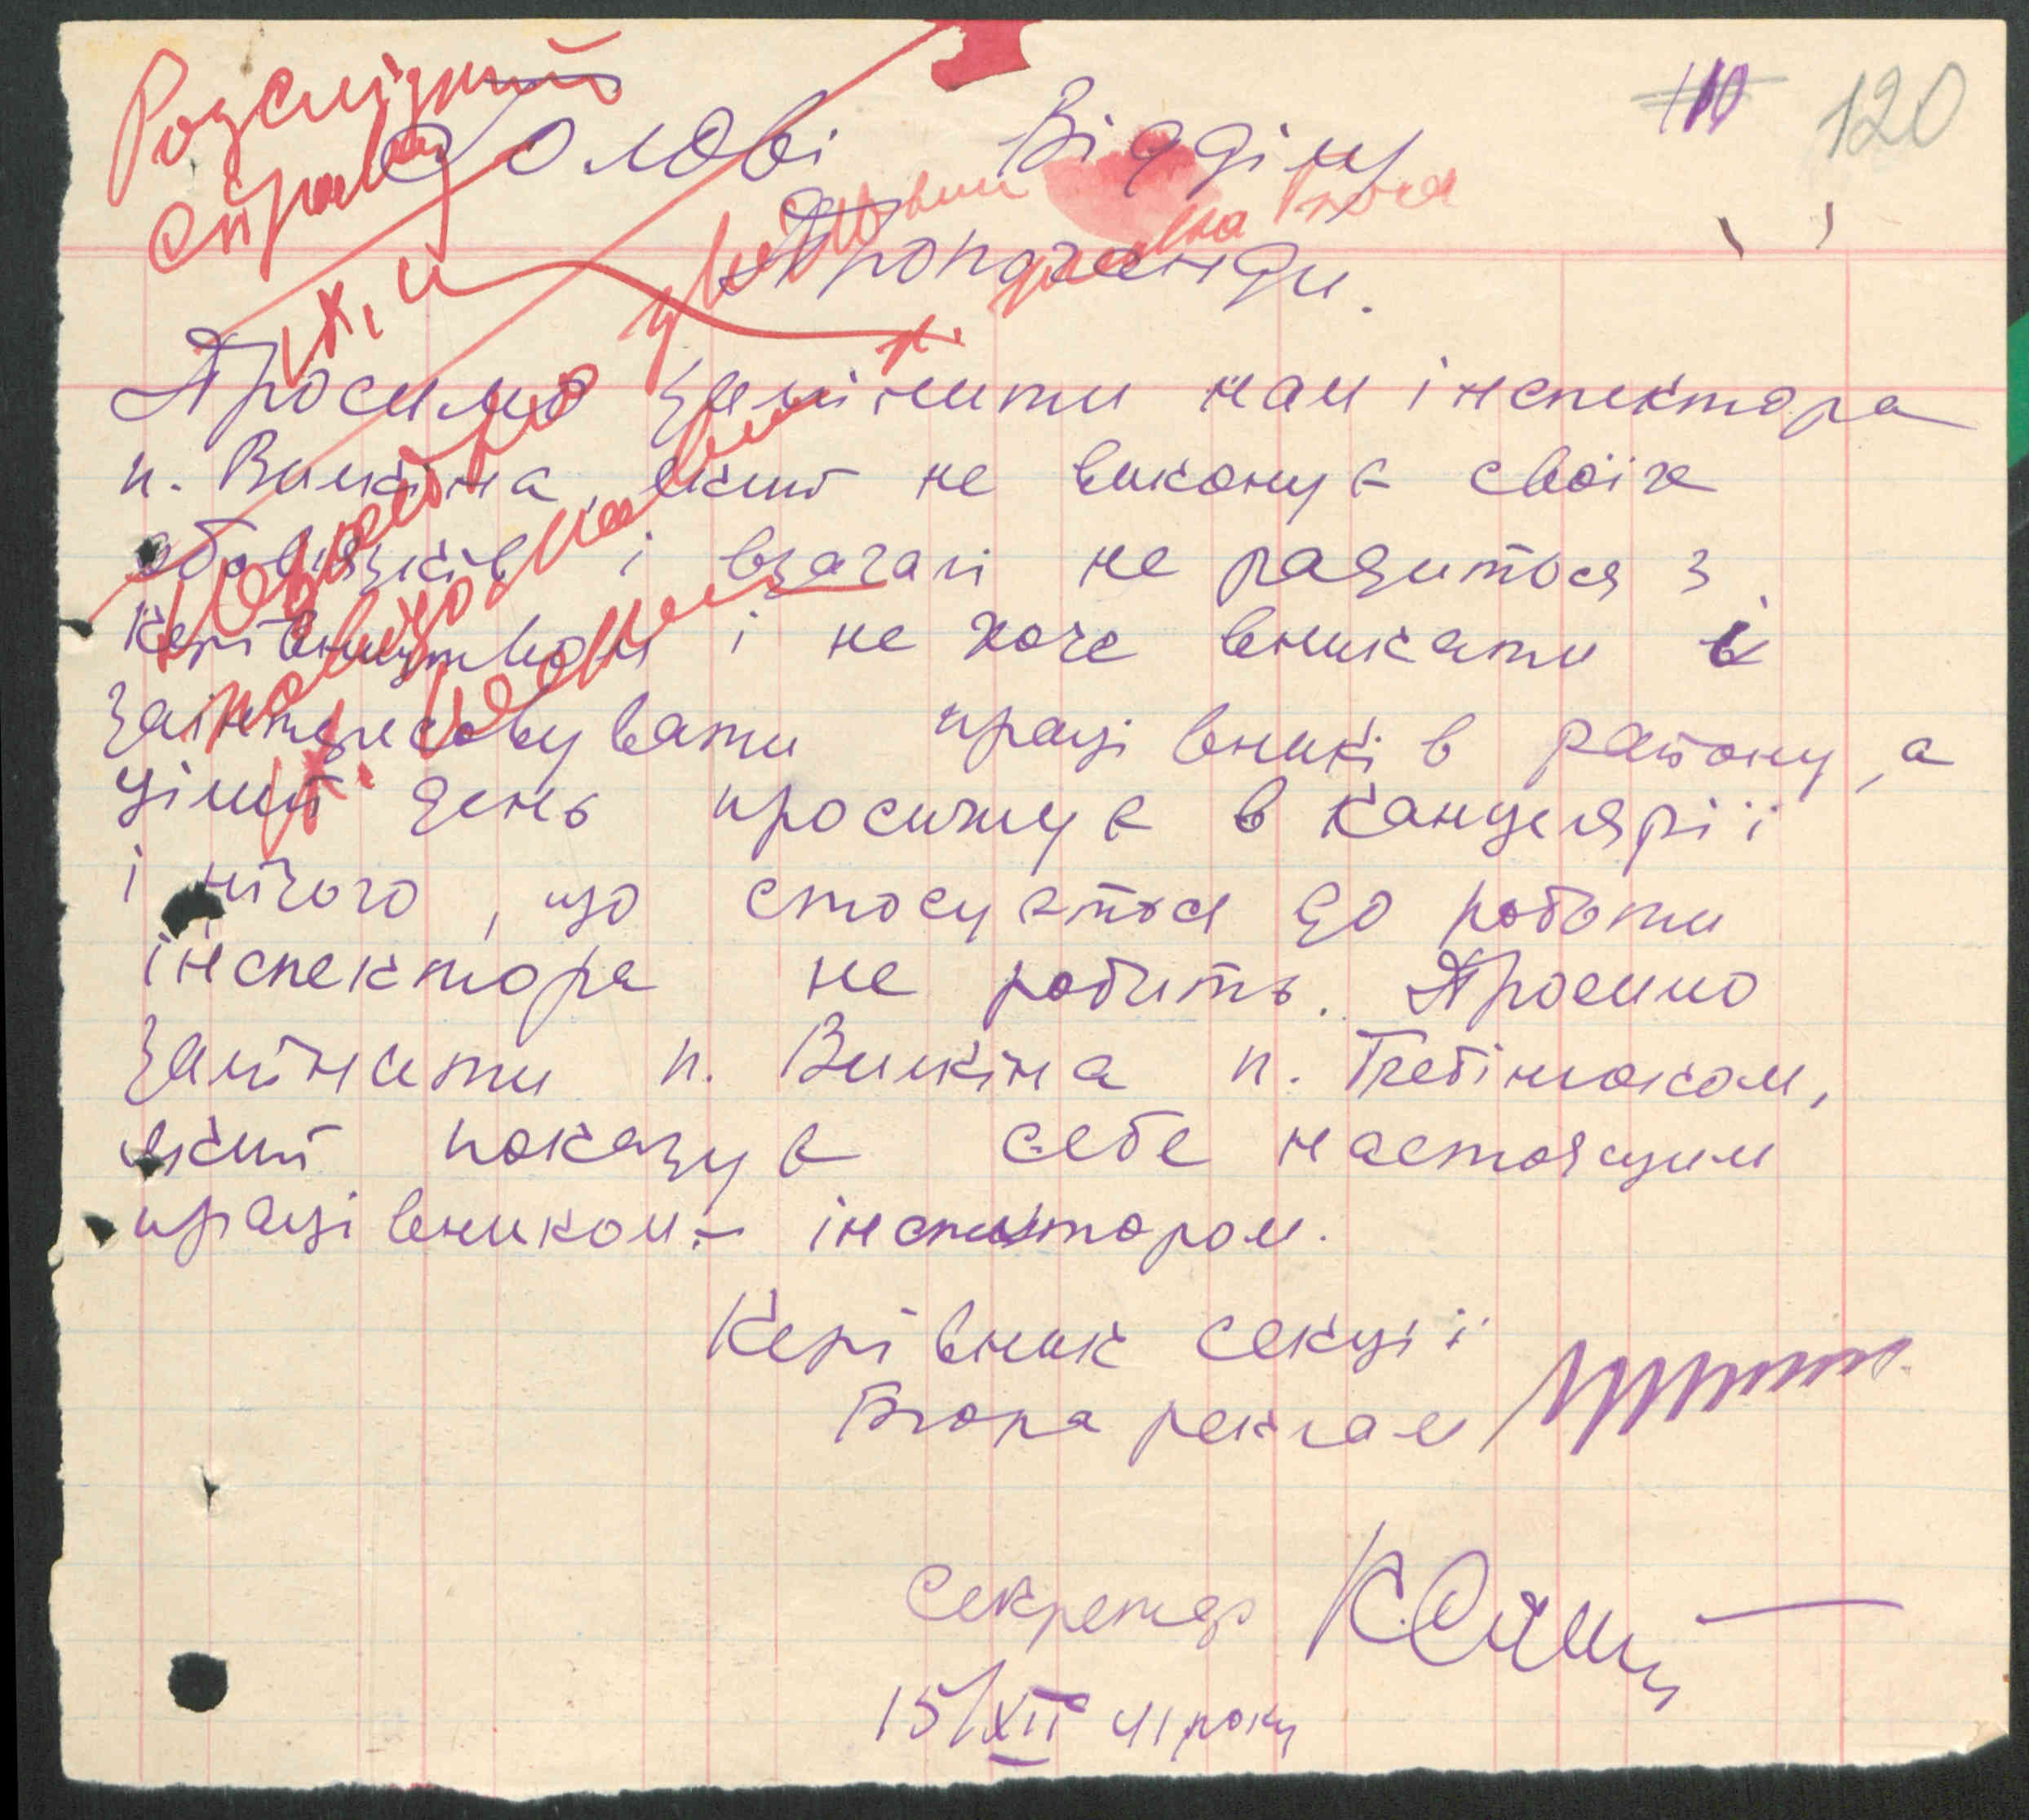 110 120
Розслідуйте
справу
Голові Відділу
Пропаганди.
Просимо замінити нам інспектора
п. Вилкіна, який не виконує своїх
обов'язків і взагалі не радиться з
керівництвом і не хоче вникати і
заінтересовувати працівників району, а
цілий день просижує в канцелярії
і нічого, що стосується до роботи
інспектора не робить. Просимо
замінити п. Вилкіна п. Гребінюком,
який показує себе настоящим
працівником – інспектором.
Керівник секції
Бюра реклам
Секретар
15/XII 41 року